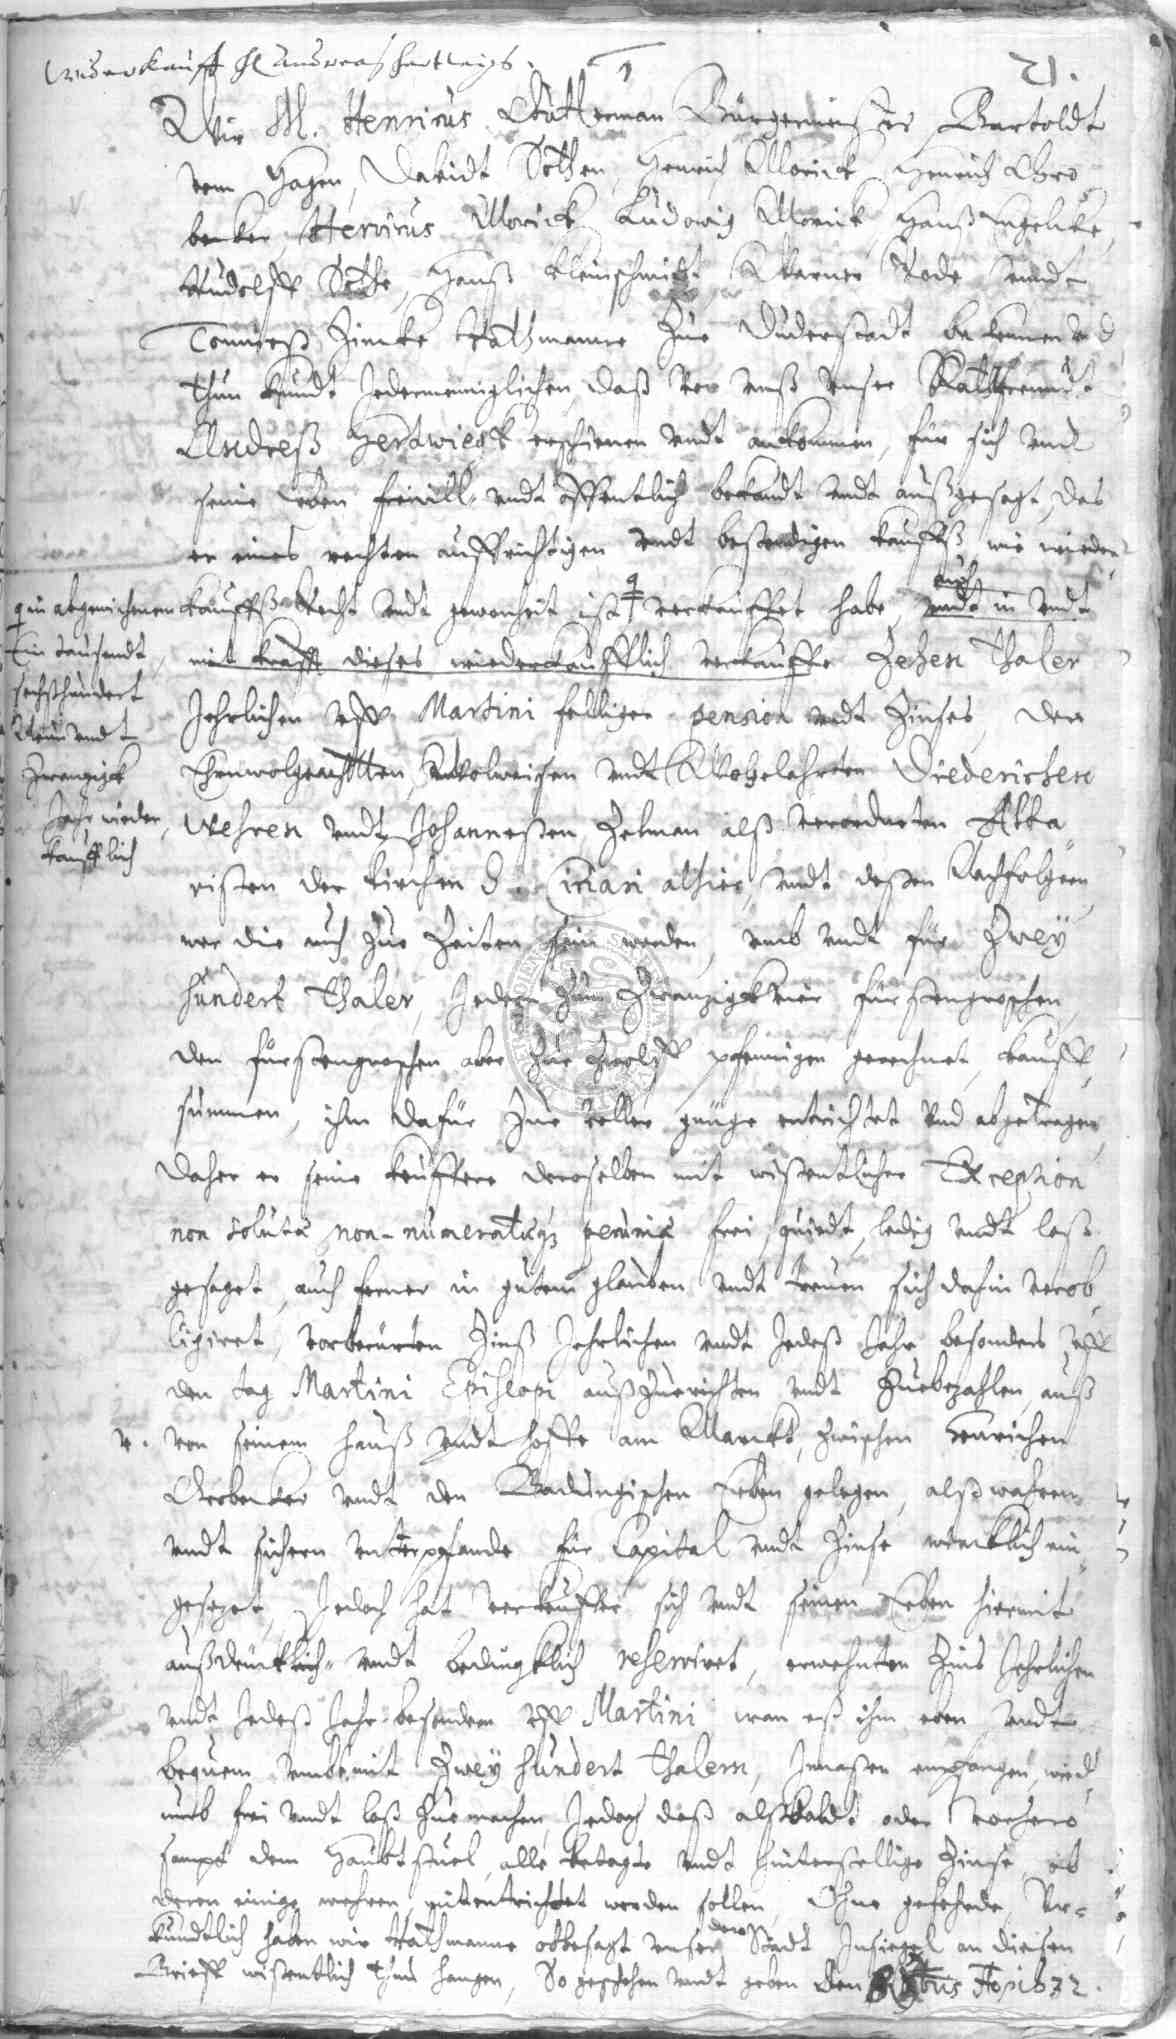 Wiederkauff H Andreas Hertwigs.
21.
Wir M. Henricus Watterman Bürgermeister Bartoldt
vom Hagen, Davidt Sothen, Henrich Morick, Henrich Gro
becker, Henricus Morick, Ludowig Morick, Hanß Engelke,
Rudolff Sothe, Hanß Kleinschmidt, Warner Rode vndt
Tonnieß Zincke Rathmanne zue Duderstadt bekennen vnd
thun kundt Jedermenniglichen, daß vor vnß vnser Rathsfreundt
Andreß Hertwiegk erschienen vndt ankommen, für sich vnd
seine erben freiwill- vndt offentlich bekandt vndt außgesagt, das
er eines rechten auffrichtigen vndt bestendigen kauffß, wie wieder-
kauffß Recht vndt gewonheit ist verkauffet habe, auch vndt in vndt
mit krafft dieses wiederkaufflich verkauffe Zehen Thaler
Jehrlichen vff Martini felliger pension vndt Zinses, den
Ehrnwolgeachtten, wolweisen vndt Wolgelahrten Diederichen
Wehren vndt Johanneßen Zelman alß verordneten Alta
risten der Kirchen S. Ciriaci alhier, vndt deßen Nachfolgern
wer die auch zue Zeiten sein werden, vmb vndt für Zwey
hundert Thaler, Jeden zum Zwanzigkvier fürstengroschen
den fürstengroschen aber zue zwolff pfennigen gerechnet, kauff
summen, ihm dafür zue voller gnüge entrichtet vnd abgetragen,
Daher er seine keuffere deroselben mit wissentlicher Exception
non solutæ non-numeratæque pecuniæ frei, quiedt, ledig vndt loß
gesaget, auch ferner in gutem glauben vndt trewen sich dahin verob
ligiret, vorberürten Zinß Jehrlichen vndt Jedeß Jahr besonders vff
den tag Martini Episcopi außzuerichten vndt Zuebezahlen, auß
v. von seinem Hauß vndt Hoffe am Marckt, zwischen Henrichen
Grobecker vndt den Badungischen Erben gelegen, alß wahrem
vndt sichern vnterpfande für Capital vndt Zinse würcklich ein
gesezet, Jedoch hat verkeuffer sich vndt seinen Erben hiermit
außdrücklich- vndt bedingklich reserviret, erwehnten Zins Jehrlichen
vndt Jedeß Jahr besondern vff Martini wan eß ihm eben vndt
bequem vmb: mit Zwey hundert Thalern, Inmaßen empfangen, wied
umb frei vndt loß Zuemachen, Jedoch daß alßbaldt oder vorhero
sampt dem Haubtstuel, alle betagte vndt hinterstellige Zinse, ob
deren einige wehren, mitentrichtet werden sollen, Ohne gefehrde, Vr-
kundtlich haben wir Rathmanne obbesagt vnser der Stadt Insiegel an diesen
Brieff wissentlich thun hangen, So geschehen vndt geben den
in abgewichenem
Ein tausendt
sechßhundert
Neun vndt
Zwanzigk
Jahr wieder
kaufflich